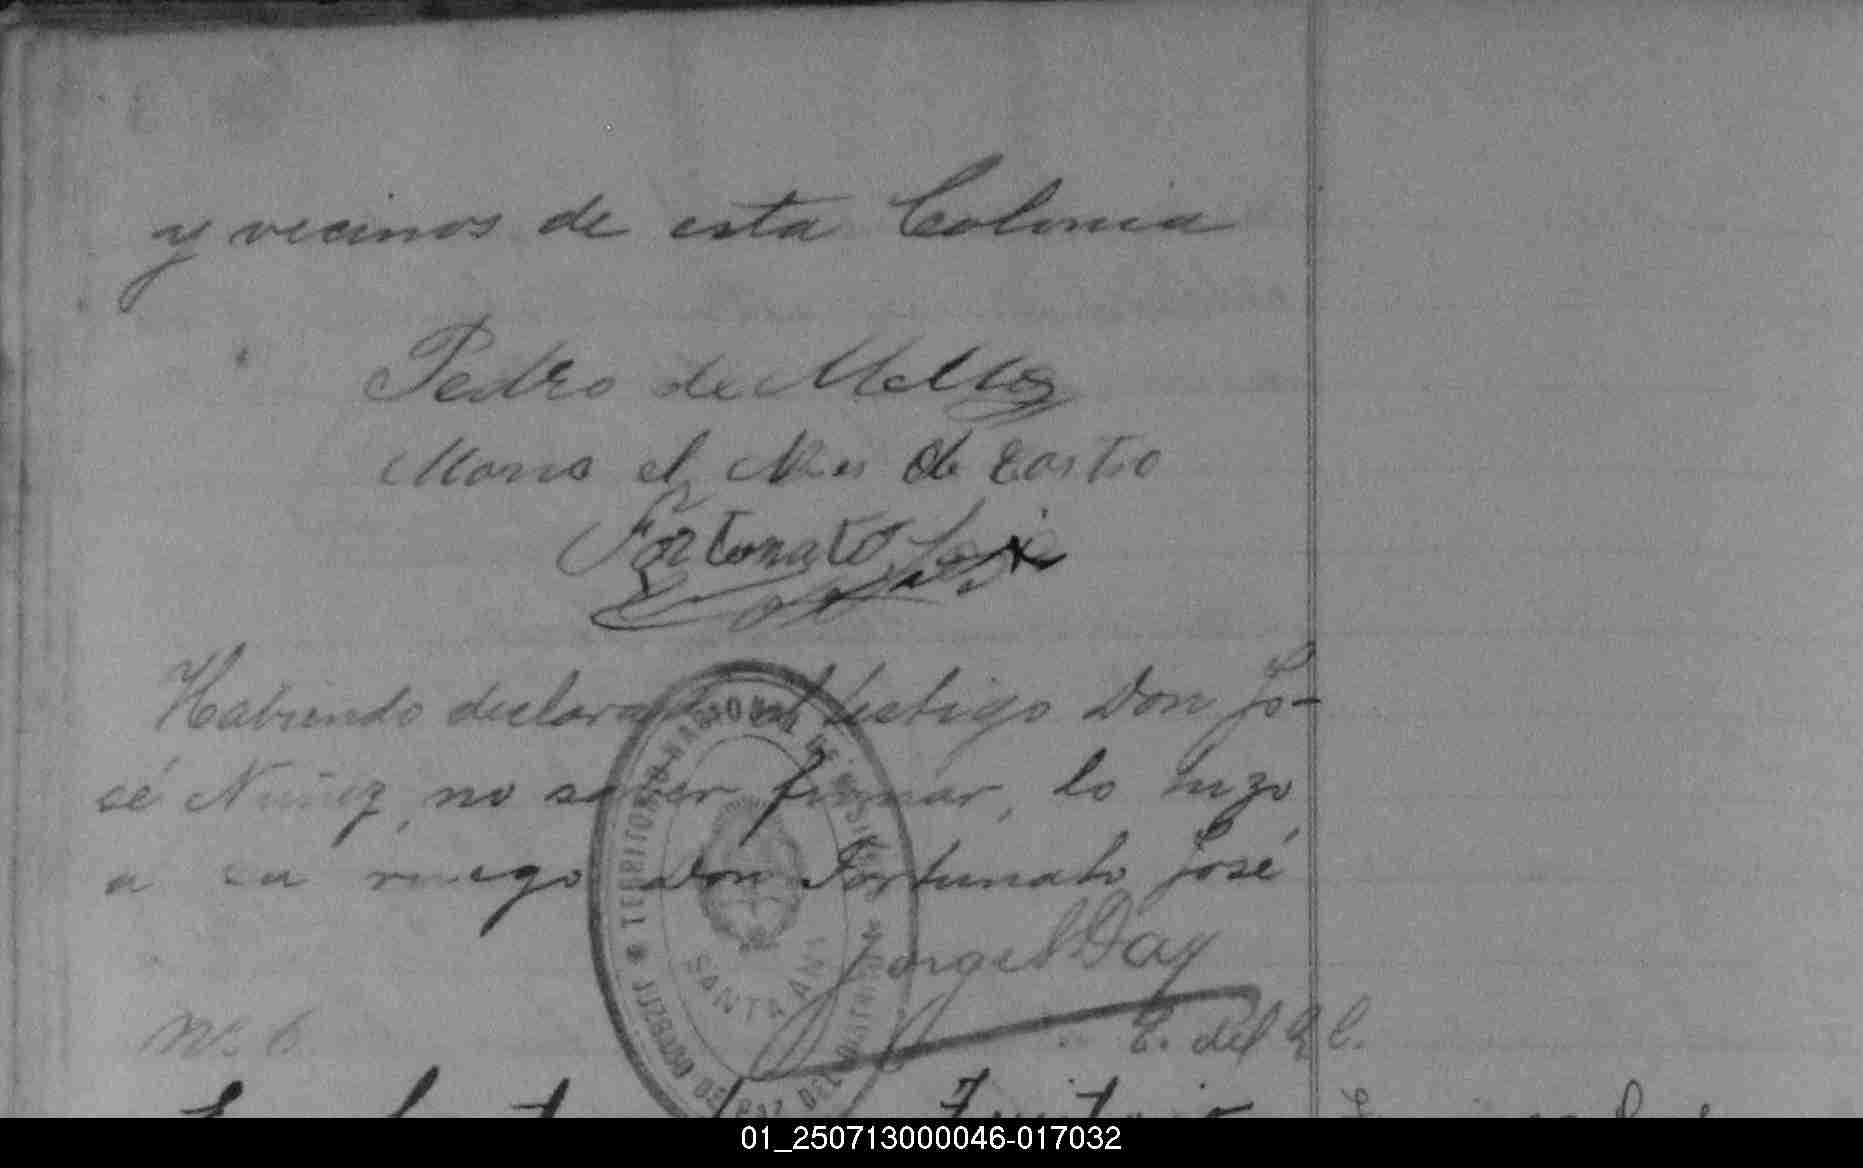 y vecinos de esta Colonia
Pedro de Mello
Mano el de Castro
Fortunato José
Habiendo declarado el testigo Don Jo-
sé Nuñez, no saber firmar, lo hizo
a su ruego Don Fortunato José
Jorge Day
E. del R. C.
Nº 6
TERRITORIO NACIONAL DE MISIONES
SANTA ANA
01_250713000046-017032